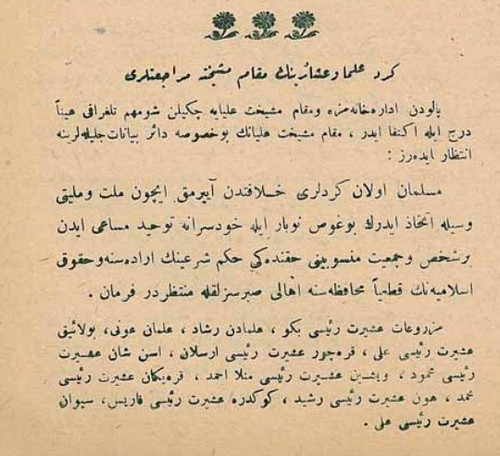 كرد علما و عشائرينك مقام مشيخته مراجعتلرى
پالودن اداره‌خانه‌مزه و مقام مشيخت عليايه چكيلن شو مهم تلغرافى عيناً
درج ايله اكتفا ايدر ، مقام مشيخت عليانك بو خصوصه دائر بيانات جليله‌لرينه
انتظار ايده‌رز :
مسلمان اولان كردلرى خلافتدن آييرمق ايچون ملت و مليتى
وسيله اتخاذ ايدرك بوغوص نوبار ايله خودسرانه توحيد مساعى ايدن
بر شخص و جمعيت منسوبينى حقنده‌كى حكم شرعينك اراده‌سنه و حقوق
اسلاميه‌نك قطعياً محافظه‌سنه اهالى صبرسزلقله منتظردر فرمان .
مزروعات عشيرت رئيسى بكو ، علمادن رشاد ، علمان عونى ، بولانيق
عشيرت رئيسى على ، قره‌جور عشيرت رئيسى ارسلان ، اسن شان عشيرت
رئيسى محمود ، ويشين عشيرت رئيسى منلا احمد ، قره‌بكان عشيرت رئيسى
محمد ، هون عشيرت رئيسى رشيد ، كوكدره عشيرت رئيسى فاريس ، سيوان
عشيرت رئيسى على .